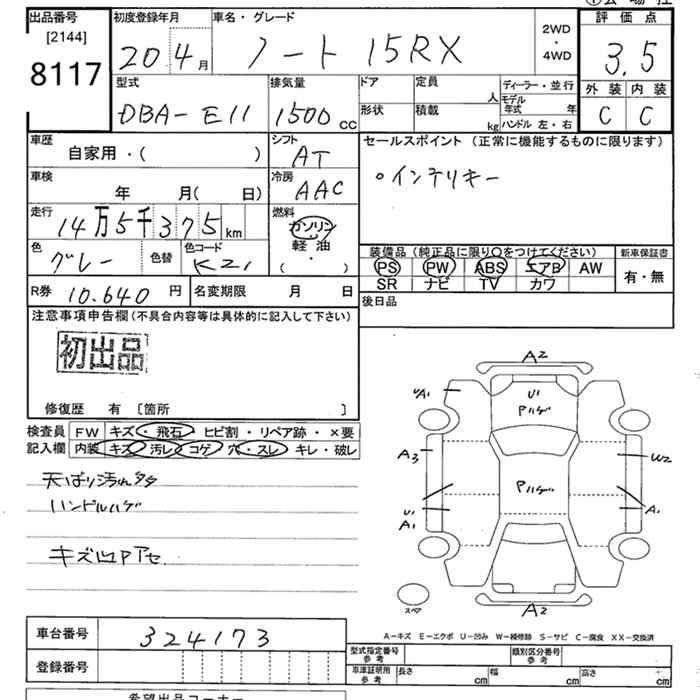 出品番号 初度登録年月 車名・グレード 評価点
[2144]
8117 20年4月 ノート 15RX 2WD・4WD 3.5
型式 排気量 ドア 定員 人 ディーラー・並行 外装 内装
DBA-E11 1500cc 形状 積載 kg モデル年式 年 ハンドル 左・右 C C
車歴 シフト セールスポイント (正常に機能するものに限ります)
自家用・( ) AT
車検 冷房 ・インテリキー
年 月( 日) AAC
走行 燃料
14万5千375km ガソリン
軽油
( ・ )
色 色替 色コード 装備品 (純正品に限り○をつけてください) 新車保証書
グレー KZ1 PS PW ABS エアB AW 有・無
SR ナビ TV カワ
R券 10.640円 名変期限 月 日 後日品
注意事項申告欄(不具合内容等は具体的に記入して下さい)
初出品
修復歴 有 [箇所 ]
検査員 FW キズ・飛石・ヒビ割・リペア跡・×要
記入欄 内装 キズ 汚レ コゲ 穴・スレ・キレ・破レ
天ばり汚れ
ハンドルハゲ
キズ凹Pアセ
A2
UA1 U1
Pハゲ
A3 W2
Pハゲ
U1 A1
A1
スペア A2
A-キズ E-エクボ U-凹み W-補修跡 S-サビ C-腐食 XX-交換済
車台番号 324173
型式指定番号 参考 類別区分番号 参考
登録番号
車庫証明用 参考 長さ cm 幅 cm 高さ cm
希望出品コーナー